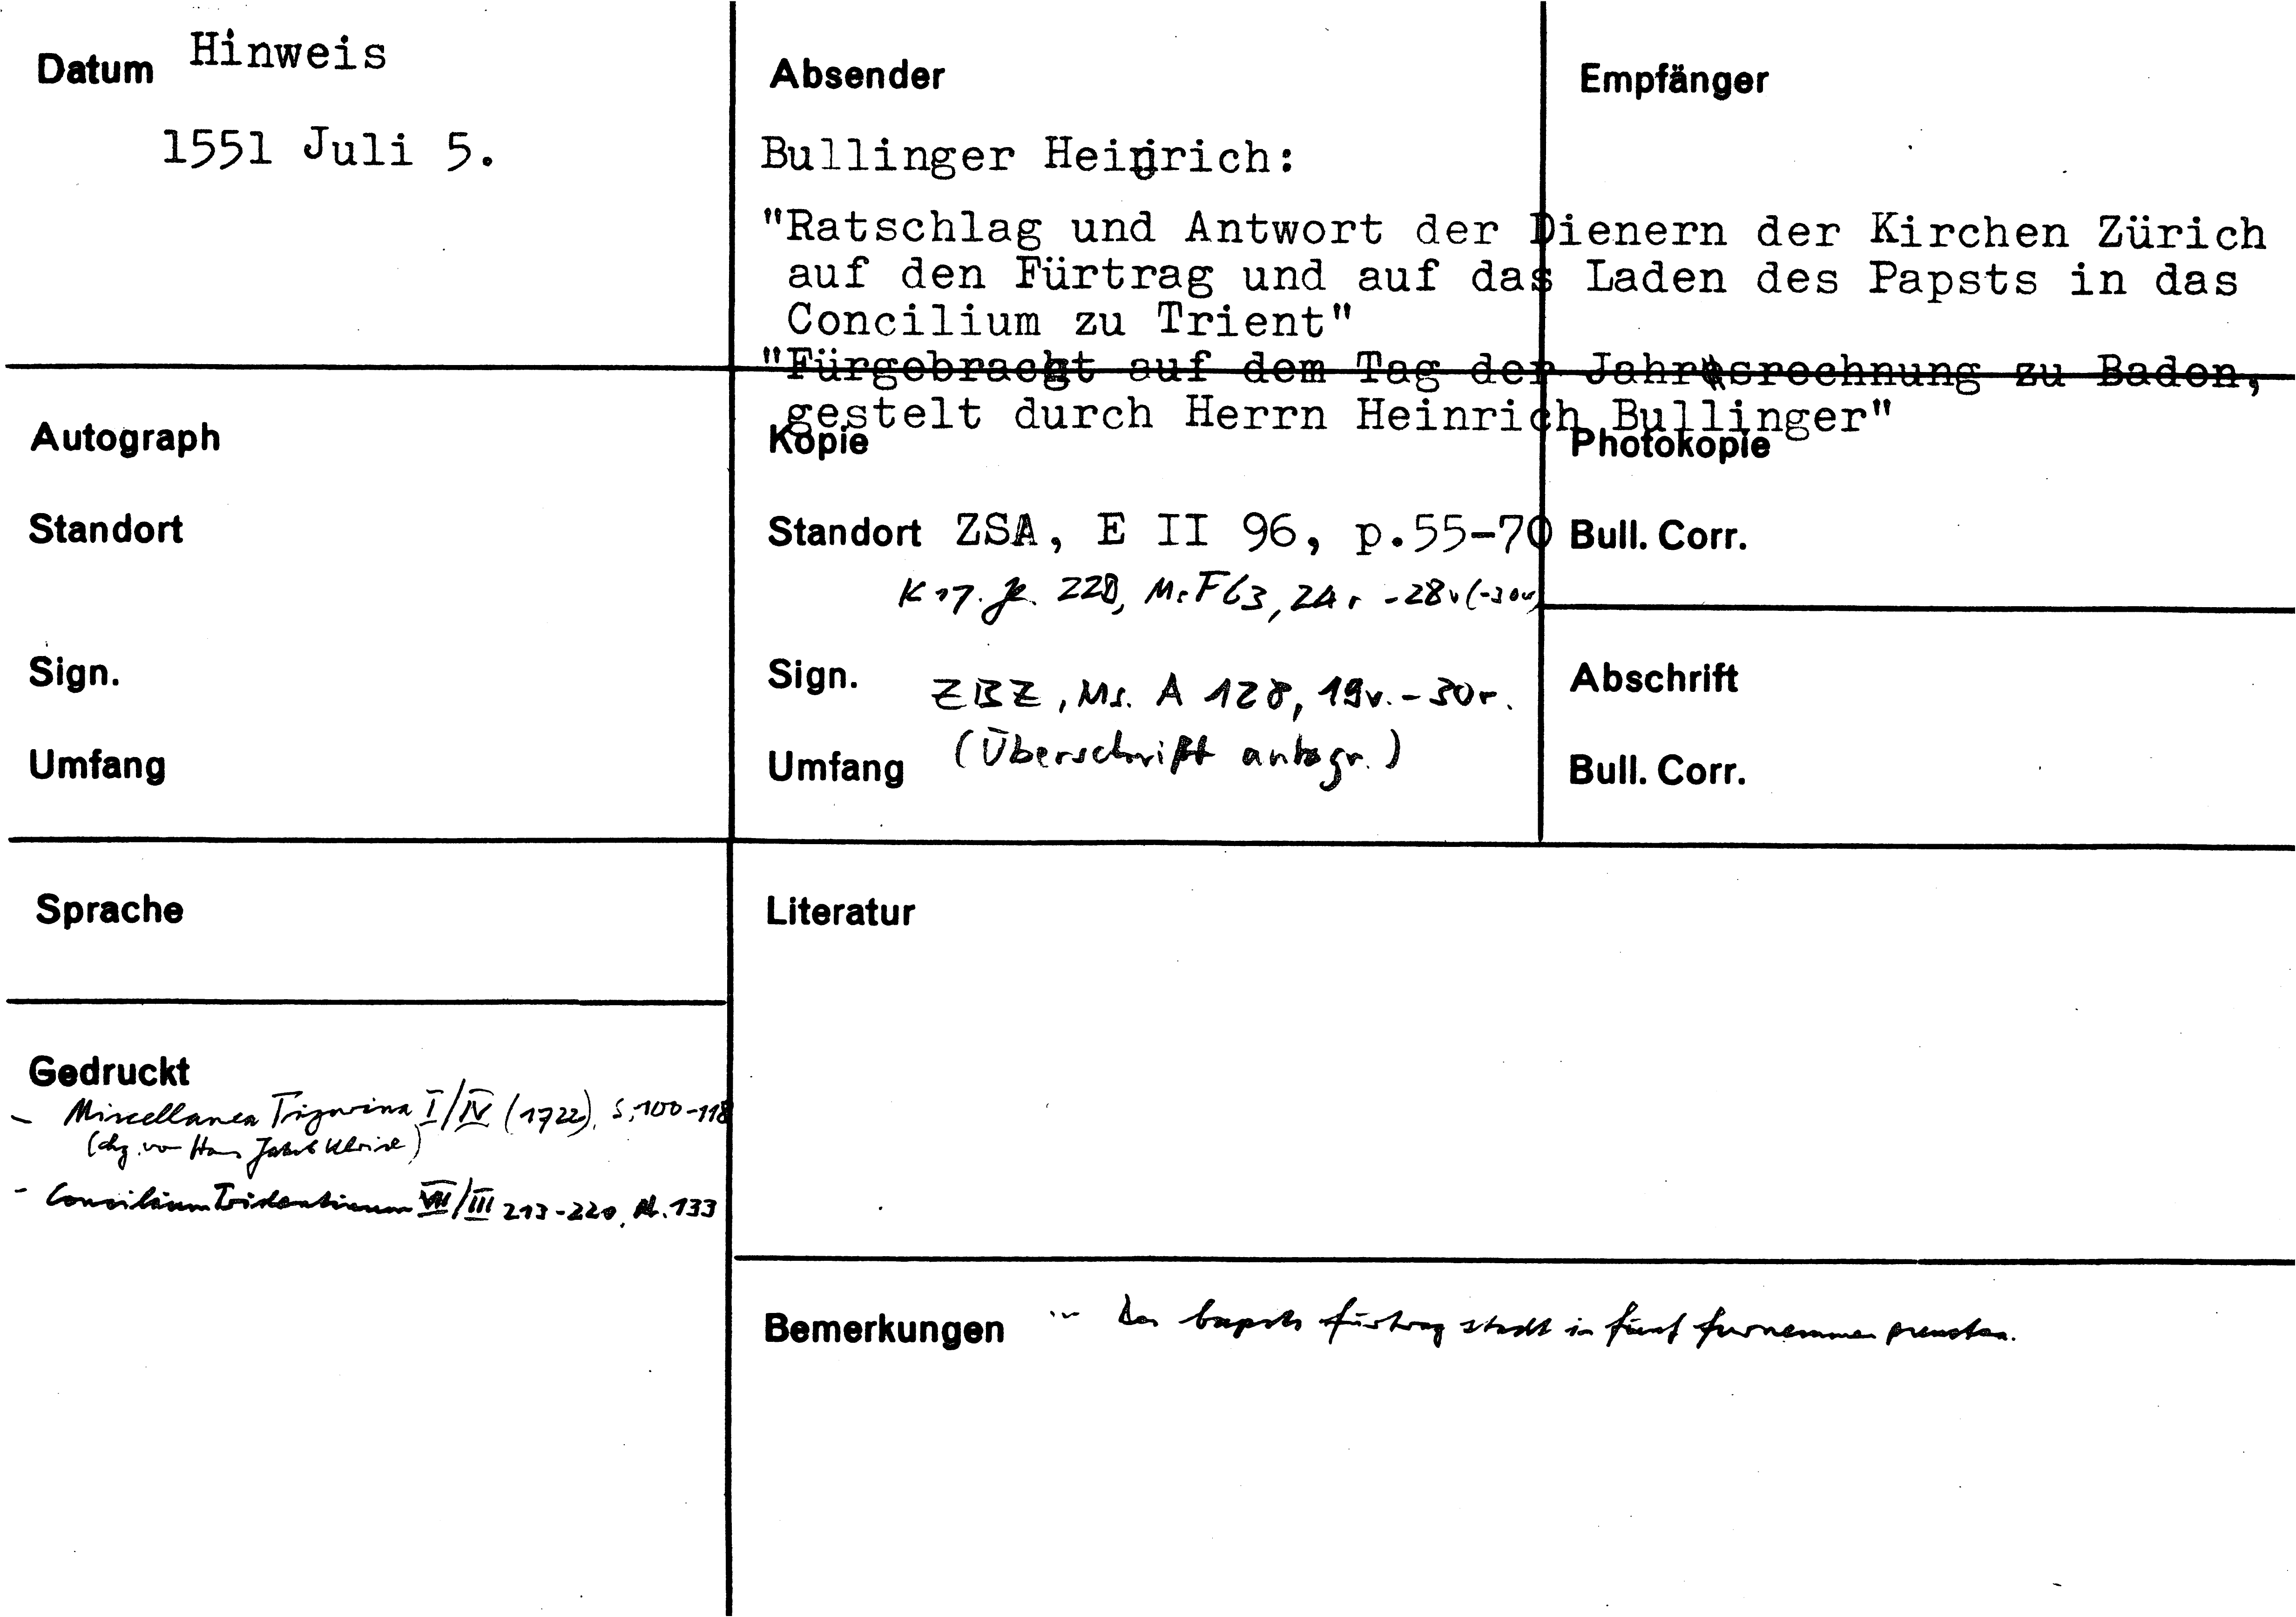 Datum Hinweis
1551 Juli 5.
Absender
Bullinger Heinrich:
"Ratschlag und Antwort der Dienern der Kirchen Zürich
auf den Fürtrag und auf das Laden des Papsts in das
Concilium zu Trient"
"Fürgebracht auf dem Tag der Jahrsrechnung zu Baden,
gestelt durch Herrn Heinrich Bullinger"
Empfänger
Autograph
Standort
Sign.
Umfang
Kopie
Standort ZSA, E II 96, p.55-70
K 17. Jh. 220, Ms F 63, 24r - 28v (-30v)
Sign. ZBZ, Ms. A 128, 19v. - 30r.
Umfang (Überschrift autogr.)
Photokopie
Bull. Corr.
Abschrift
Bull. Corr.
Sprache
Literatur
Gedruckt
- Miscellanea Tigurina I/IV (1722), S. 100-118
(hg. von Hans Jakob Ulrich)
- Concilium Tridentinum VII/III 213-220, Nr. 133
Bemerkungen ... Des bapsts fürtrag stadt in fünf furnemmen puncten.